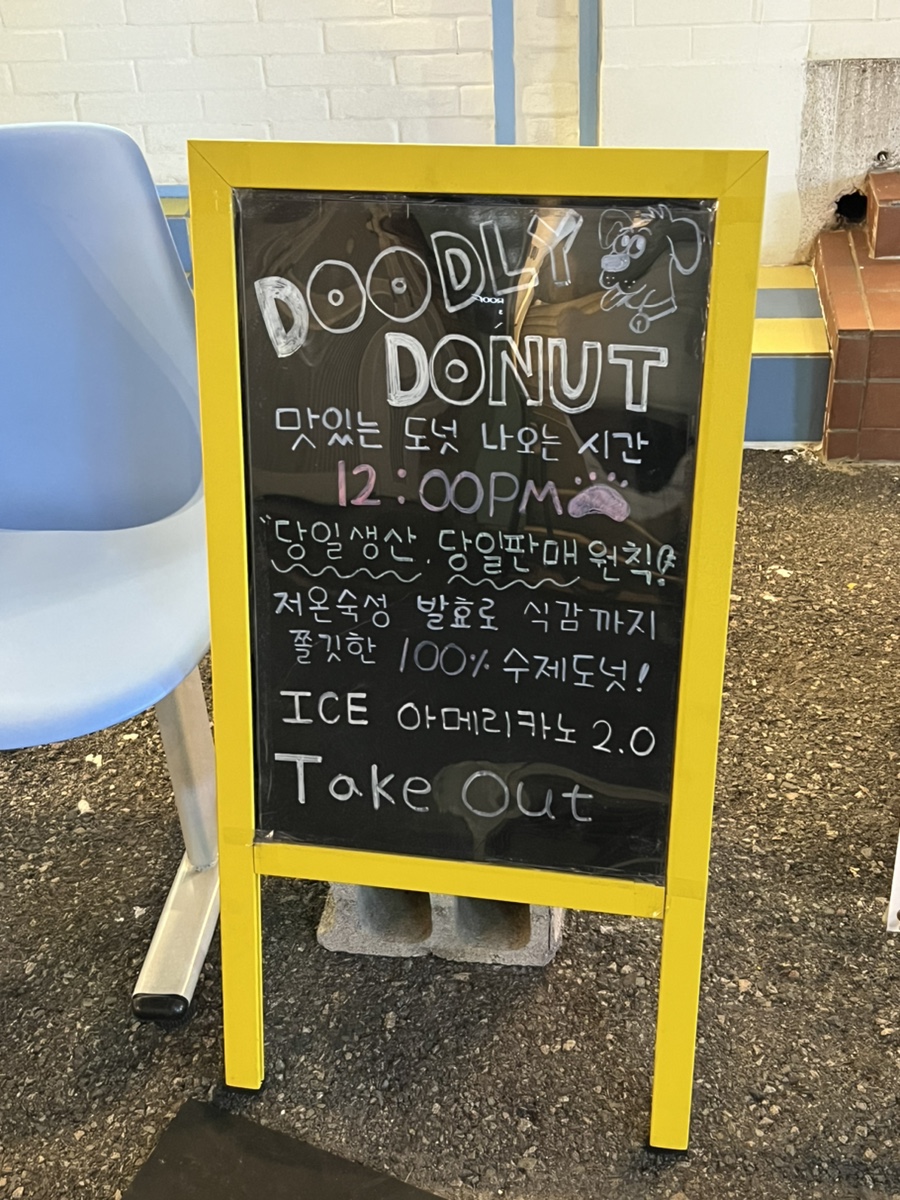 DOODLY
DONUT
맛있는 도넛 나오는 시간
12:00PM
"당일생산, 당일판매 원칙!
저온숙성 발효로 식감까지
쫄깃한 100% 수제도넛!
ICE 아메리카노 2.0
Take Out